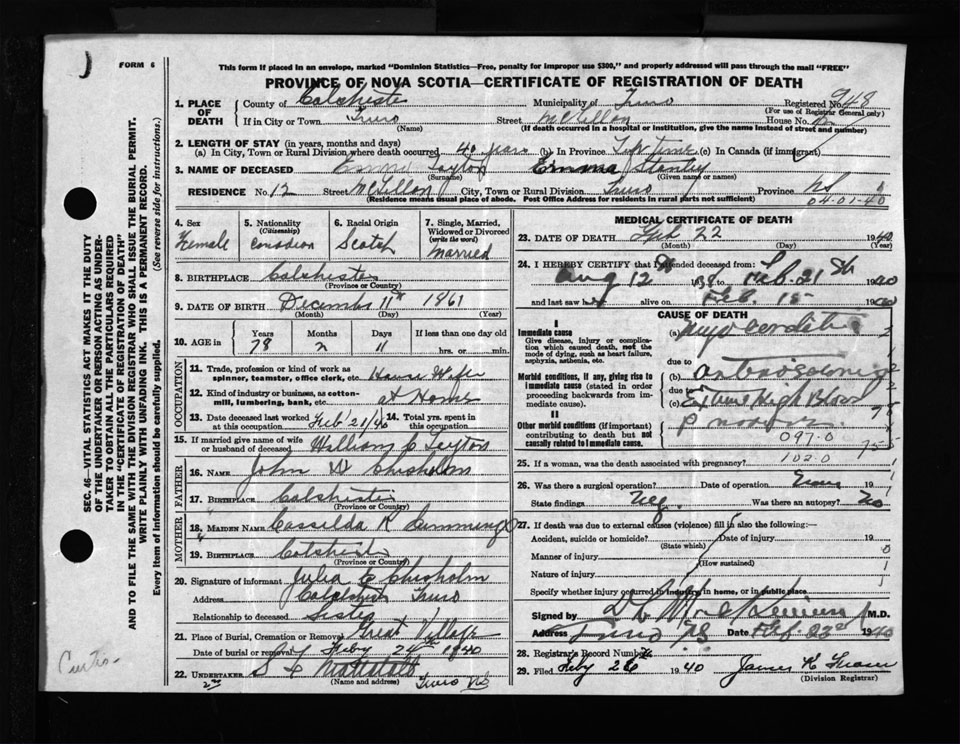 FORM 6
This form if placed in an envelope, marked "Dominion Statistics—Free, penalty for improper use $300," and properly addressed will pass through the mail "FREE"
PROVINCE OF NOVA SCOTIA—CERTIFICATE OF REGISTRATION OF DEATH
1. PLACE OF DEATH County of Colchester Municipality of Truro Registered No. 948
(For use of Registrar General only)
If in City or Town Truro Street McClellon House No. 12
(Name) (If death occurred in a hospital or institution, give the name instead of street and number)
2. LENGTH OF STAY (in years, months and days)
(a) In City, Town or Rural Division where death occurred 40 years (b) In Province Life time (c) In Canada (if immigrant)
3. NAME OF DECEASED Layton Emma Stanley
(Surname) (Given name or names)
RESIDENCE No. 12 Street McClellon City, Town or Rural Division Truro Province NS
(Residence means usual place of abode. Post Office Address for residents in rural parts not sufficient) 04-01-40
4. Sex Female
5. Nationality (Citizenship) Canadian
6. Racial Origin Scotch
7. Single, Married, Widowed or Divorced (write the word) Married
8. BIRTHPLACE Colchester
(Province or Country)
9. DATE OF BIRTH December 11th 1861
(Month) (Day) (Year)
10. AGE in Years 78 Months 2 Days 11 If less than one day old hrs. or min.
OCCUPATION
11. Trade, profession or kind of work as spinner, teamster, office clerk, etc. House Wife
12. Kind of industry or business, as cotton-mill, lumbering, bank, etc. at Home
13. Date deceased last worked at this occupation Feb 21/40 14. Total yrs. spent in this occupation
15. If married give name of wife or husband of deceased William C Layton
FATHER
16. NAME John W Chisholm
17. BIRTHPLACE Colchester
(Province or Country)
MOTHER
18. MAIDEN NAME Cassilda K Cummings
19. BIRTHPLACE Colchester
(Province or Country)
20. Signature of informant Julia C Chisholm
Address Colchester Truro
Relationship to deceased Sister
21. Place of Burial, Cremation or Removal Great Village
Date of burial or removal Feby 24th 1940
22. UNDERTAKER
(Name and address) Truro NS
MEDICAL CERTIFICATE OF DEATH
23. DATE OF DEATH Feb 22 1940
(Month) (Day) (Year)
24. I HEREBY CERTIFY that I attended deceased from:
Aug 12th 1938 to Feb. 21st 1940
and last saw her alive on Feb. 15 1940
CAUSE OF DEATH
I
Immediate cause
Give disease, injury or complication which caused death, not the mode of dying, such as heart failure, asphyxia, asthenia, etc.
(a) Myocarditis
due to
Morbid conditions, if any, giving rise to immediate cause (stated in order proceeding backwards from immediate cause).
(b)
due to
(c) Extreme High Blood
II
Other morbid conditions (if important) contributing to death but not causally related to immediate cause.
097.0
102.0
25. If a woman, was the death associated with pregnancy?
26. Was there a surgical operation? Date of operation 19
State findings Was there an autopsy? No
27. If death was due to external causes (violence) fill in also the following:—
Accident, suicide or homicide? Date of injury 19
(State which)
Manner of injury
(How sustained)
Nature of injury
Specify whether injury occurred in industry, in home, or in public place
Signed by M.D.
Address Truro NS Date Feb. 23rd 1940
28. Registrar's Record Number
29. Filed Feby 26 1940 James K Fraser
(Division Registrar)
SEC. 46—VITAL STATISTICS ACT MAKES IT THE DUTY OF THE UNDERTAKER OR PERSON ACTING AS UNDERTAKER TO OBTAIN ALL THE PARTICULARS REQUIRED IN THE "CERTIFICATE OF REGISTRATION OF DEATH" AND TO FILE THE SAME WITH THE DIVISION REGISTRAR WHO SHALL ISSUE THE BURIAL PERMIT.
WRITE PLAINLY WITH UNFADING INK. THIS IS A PERMANENT RECORD.
Every item of information should be carefully supplied. (See reverse side for instructions.)
Curtis